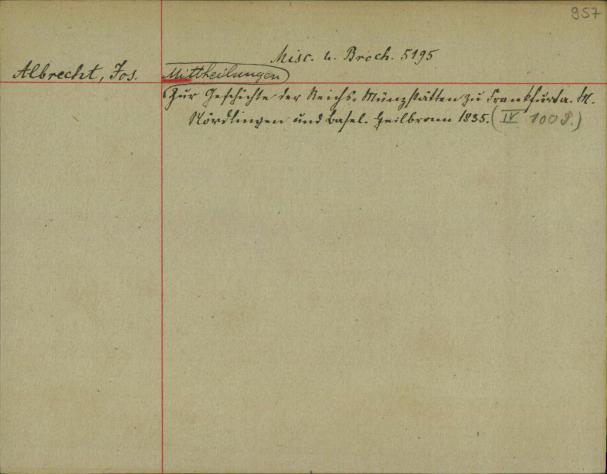 957
Misc. u. Broch. 5195
Albrecht, Jos. Mittheilungen
Zur Geschichte der Reichs-Münzstätten zu Frankfurt a. M.
Nördlingen und Basel. Heilbronn 1835. (IV 1008.)